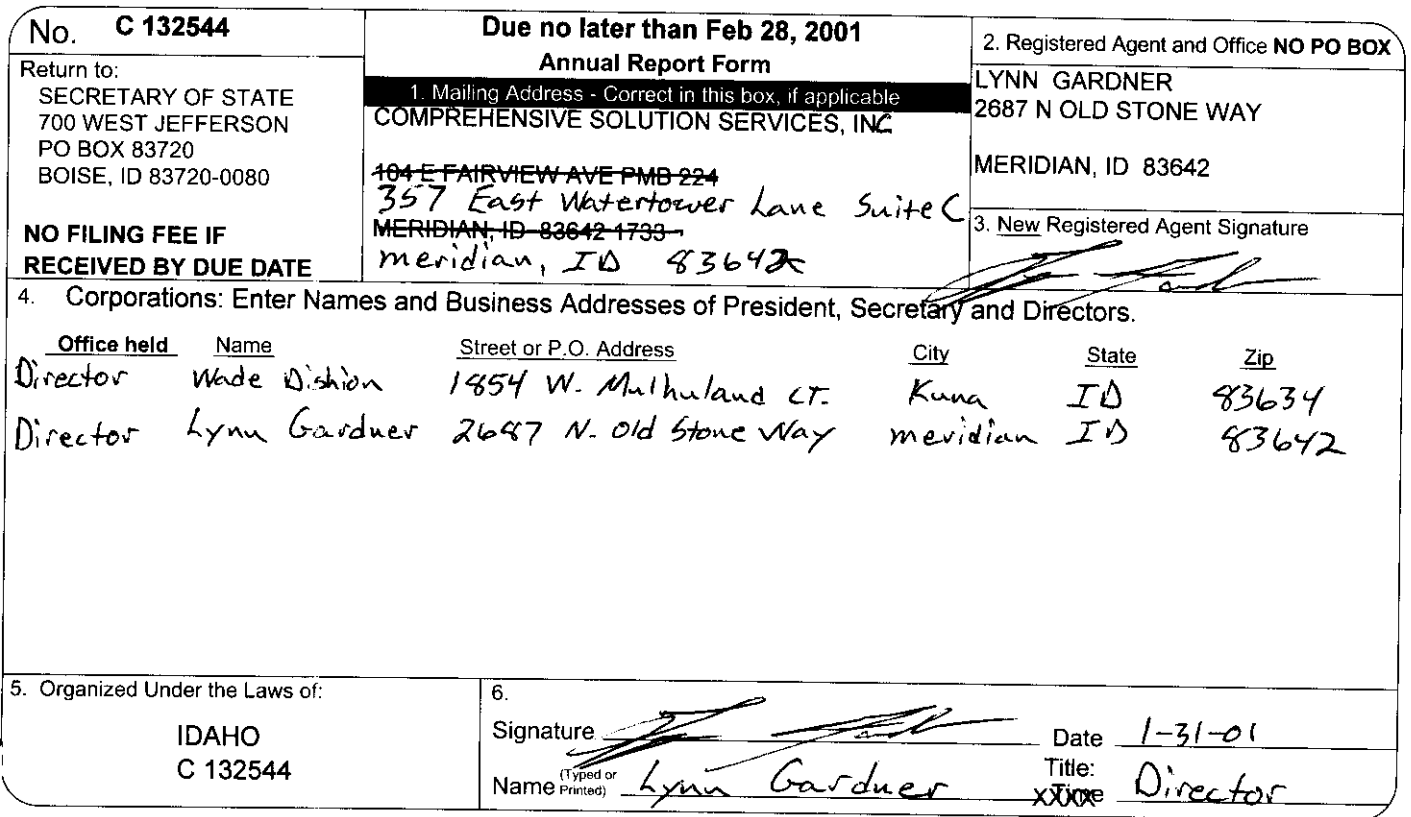 No. C 132544
Return to:
SECRETARY OF STATE
700 WEST JEFFERSON
PO BOX 83720
BOISE, ID 83720-0080
NO FILING FEE IF
RECEIVED BY DUE DATE
Due no later than Feb 28, 2001
Annual Report Form
1. Mailing Address - Correct in this box, if applicable
COMPREHENSIVE SOLUTION SERVICES, INC
104 E FAIRVIEW AVE PMB 224
357 East Watertower Lane Suite C
MERIDIAN, ID 83642-1733
meridian, ID 83642
2. Registered Agent and Office NO PO BOX
LYNN GARDNER
2687 N OLD STONE WAY
MERIDIAN, ID 83642
3. New Registered Agent Signature
4. Corporations: Enter Names and Business Addresses of President, Secretary and Directors.
Office held Name Street or P.O. Address City State Zip
Director Wade Dishion 1854 W. Mulhuland CT. Kuna ID 83634
Director Lynn Gardner 2687 N. Old Stone Way meridian ID 83642
5. Organized Under the Laws of:
IDAHO
C 132544
6.
Signature Date 1-31-01
Name (Typed or Printed) Lynn Gardner Title: Director